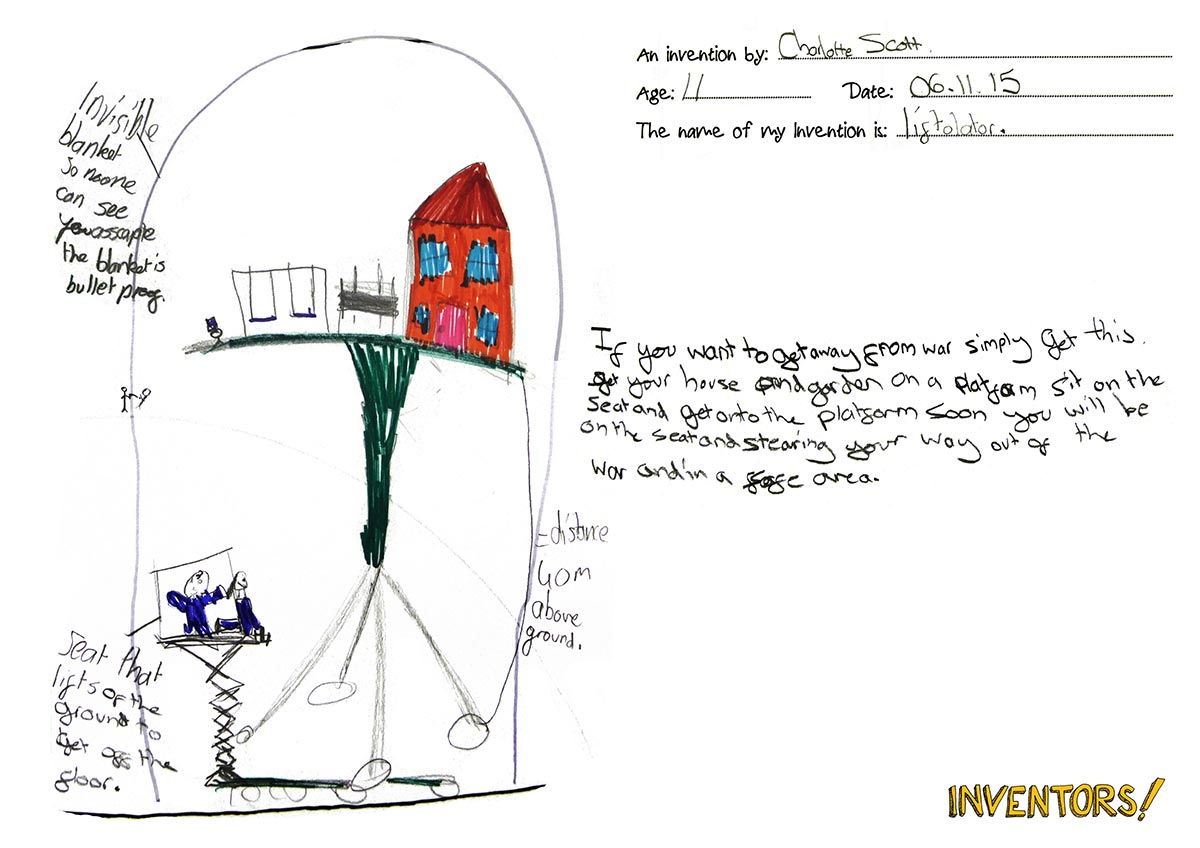 An invention by: Charlotte Scott.
Age: 11 Date: 06.11.15
The name of my Invention is: Liftolator.
Invisible
blanket
So noone
can see
you asscape
the blanket is
bullet proof.
If you want to get away from war simply get this.
get your house and garden on a platform sit on the
seat and get onto the platform soon you will be
on the seat and stearing your way out of the
war and in a safe area.
=distance
40m
above
ground.
Seat that
lifts of the
ground to
get off the
floor.
INVENTORS!